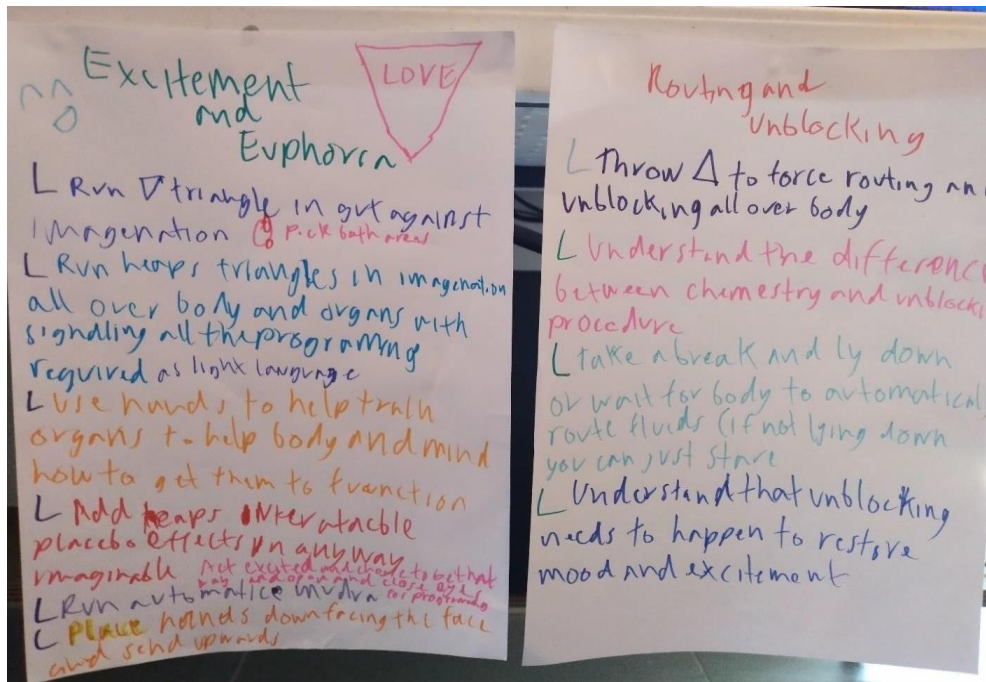 Excitement
and
Euphoria
LOVE
L Run ▽ triangle in gut against
imagenation pick both areas
L Run heaps triangles in imagenation
all over body and organs with
signalling all the programing
required as light language
L Use hands to help train
organs to help body and mind
how to get them to function
L Add heaps interatacble
placebo effects in any way
imaginable Act excited and choose to be that
way and open and close eyes
L Run automatice mudra for programing
L Place hands down facing the face
and send upwards
Routing and
Unblocking
L Throw △ to force routing an
unblocking all over body
L Understand the differenc
between chemestry and unblocki
procedure
L take a break and ly down
or wait for body to automatical
route fluids (if not lying down
you can just stare
L Understand that unblocking
needs to happen to restore
mood and excitement